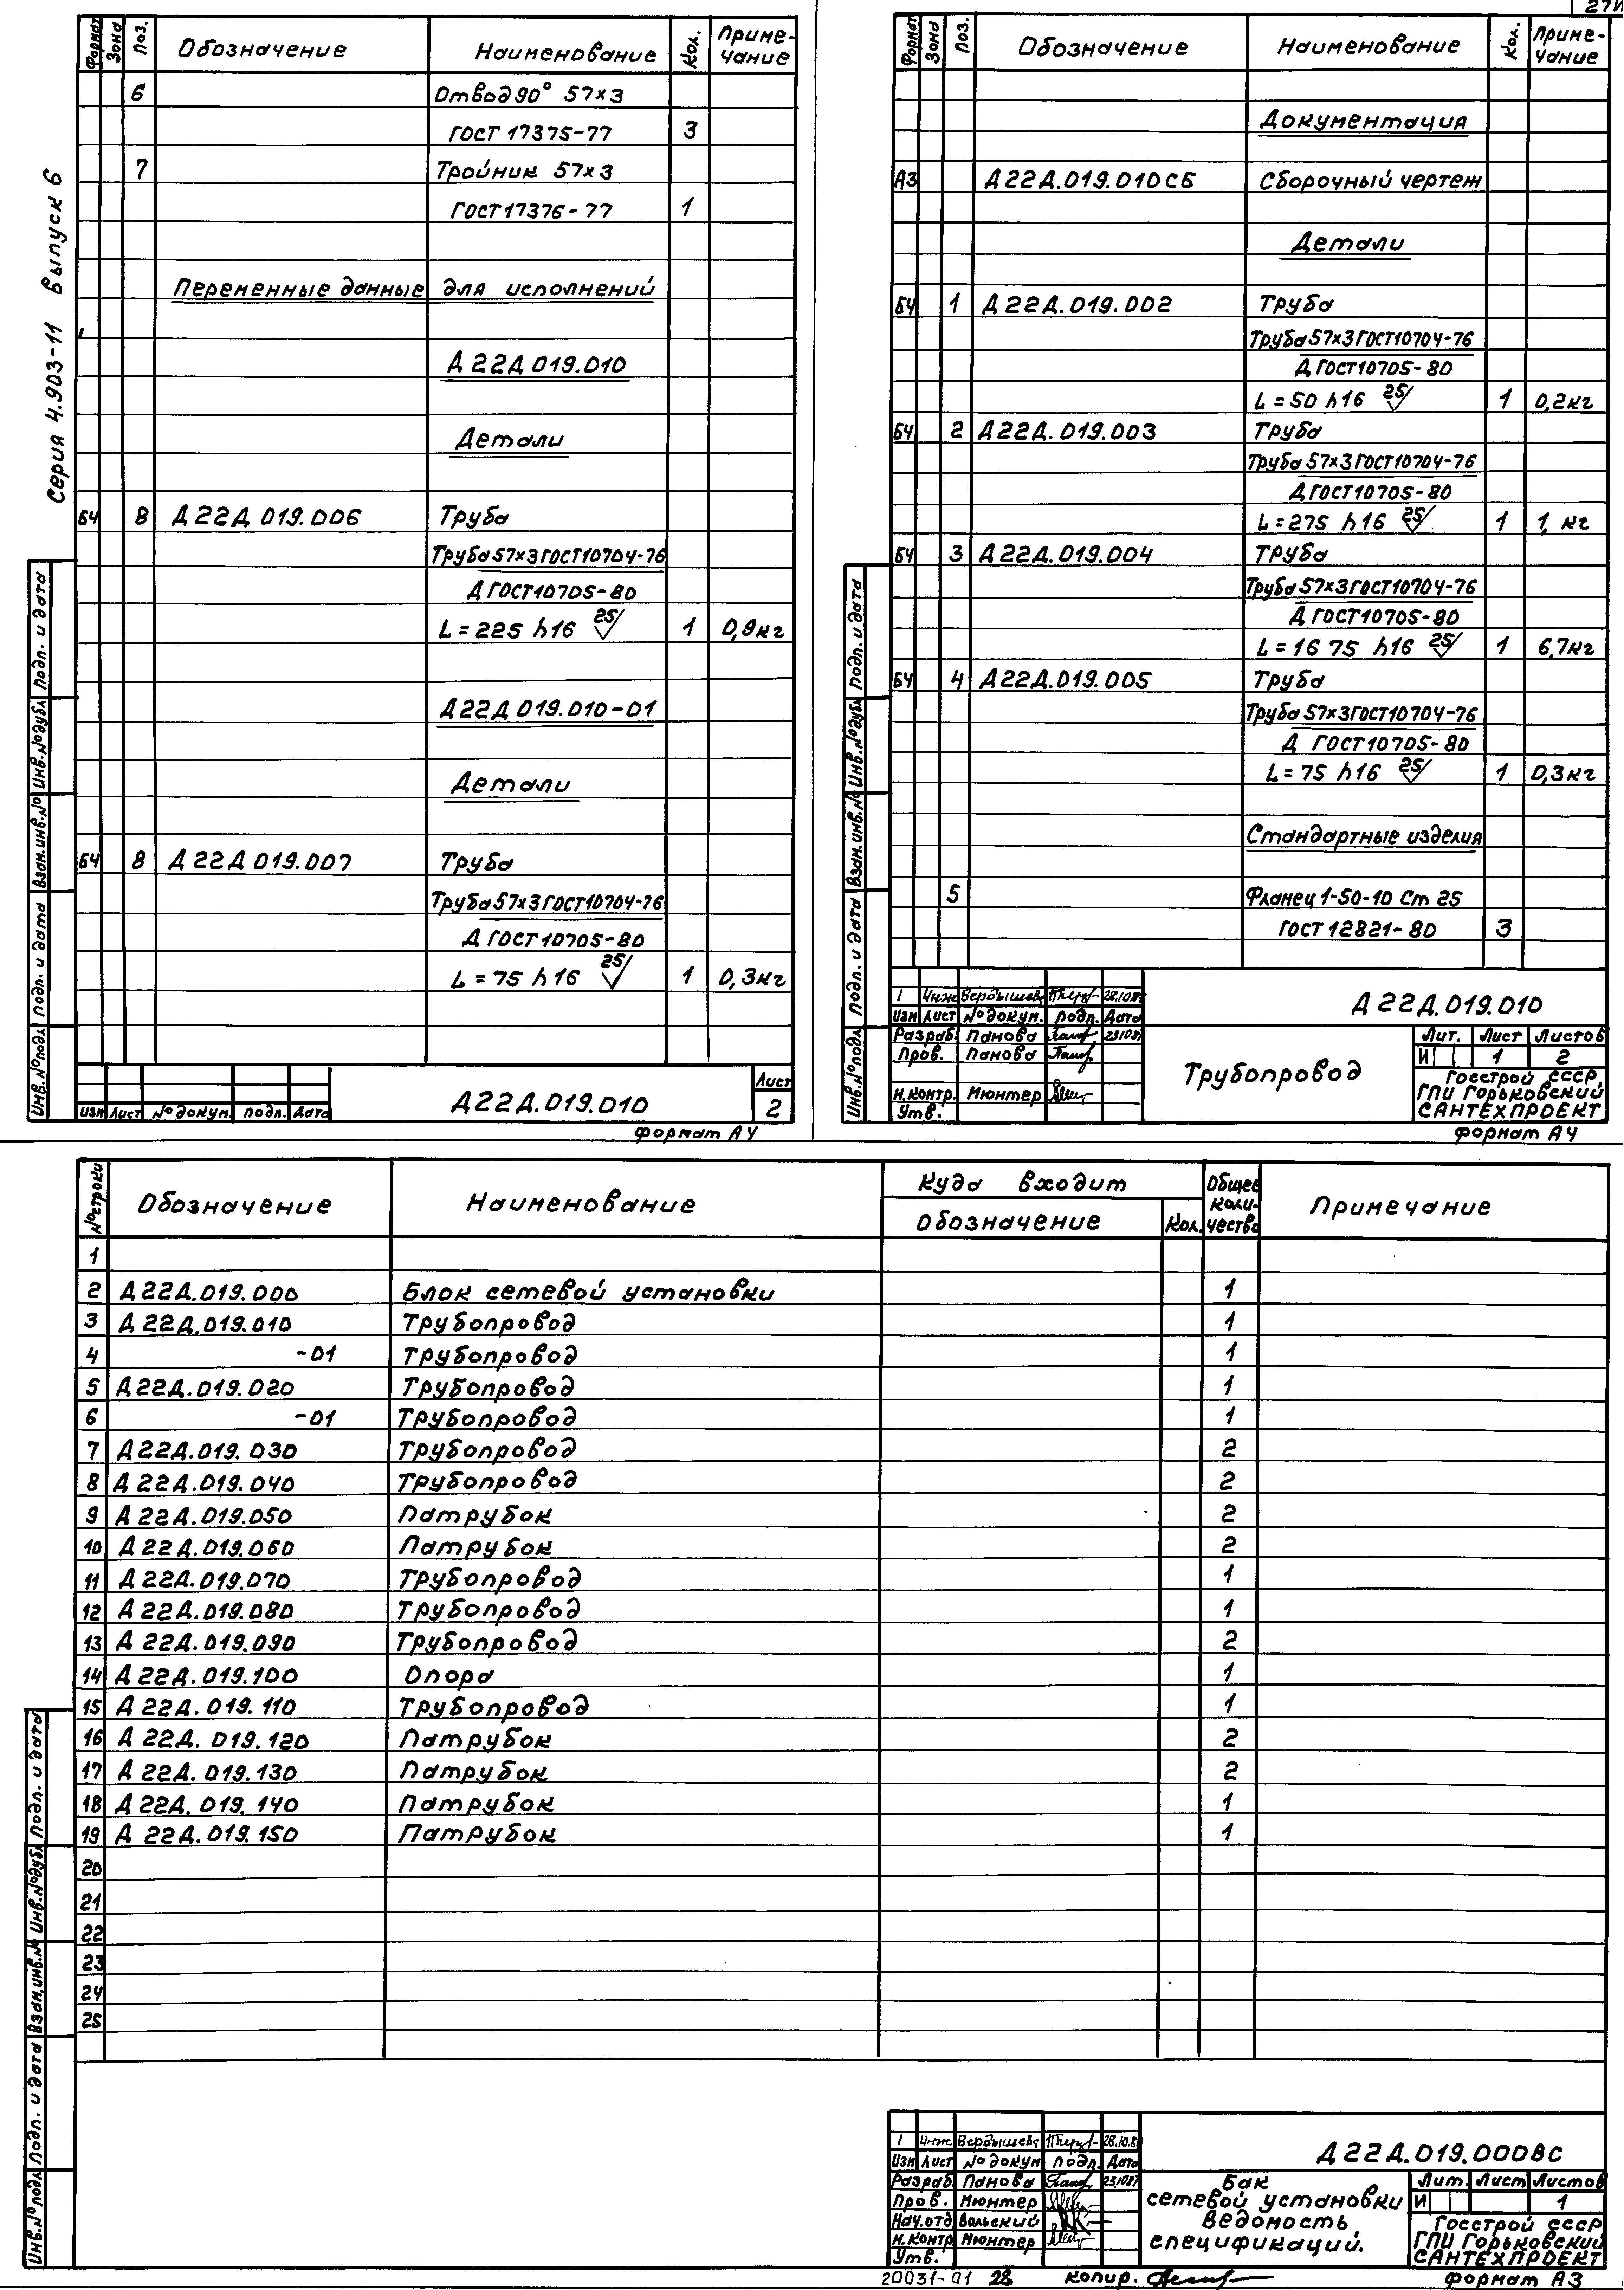 27И
Серия 4.903-11 Выпуск 6
Формат Зона Поз. Обозначение Наименование Кол. Приме-
чание
6 Отвод 90° 57×3
ГОСТ 17375-77 3
7 Тройник 57×3
ГОСТ 17376-77 1
Переменные данные для исполнений
Д22Д 019.010
Детали
БЧ 8 Д22Д 019.006 Труба
Труба 57×3 ГОСТ 10704-76
Д ГОСТ 10705-80
L=225 h16 25 1 0,9кг
Д22Д 019.010-01
Детали
БЧ 8 Д22Д 019.007 Труба
Труба 57×3 ГОСТ 10704-76
Д ГОСТ 10705-80
L=75 h16 25 1 0,3кг
Изм Лист № докум. подп. Дата
Д22Д.019.010
Лист
2
Формат А4
Инв.№ подл Подп. и дата Взам.инв.№ Инв.№ дубл Подп. и дата
Формат Зона Поз. Обозначение Наименование Кол. Приме-
чание
Документация
А3 Д22Д.019.010СБ Сборочный чертеж
Детали
БЧ 1 Д22Д.019.002 Труба
Труба 57×3 ГОСТ 10704-76
Д ГОСТ 10705-80
L=50 h16 25 1 0,2кг
БЧ 2 Д22Д.019.003 Труба
Труба 57×3 ГОСТ 10704-76
Д ГОСТ 10705-80
L=275 h16 25 1 1, кг
БЧ 3 Д22Д.019.004 Труба
Труба 57×3 ГОСТ 10704-76
Д ГОСТ 10705-80
L=1675 h16 25 1 6,7кг
БЧ 4 Д22Д.019.005 Труба
Труба 57×3 ГОСТ 10704-76
Д ГОСТ 10705-80
L=75 h16 25 1 0,3кг
Стандартные изделия
5 Фланец 1-50-10 Ст 25
ГОСТ 12821-80 3
1 Инж Вердышева
Изм Лист № докум. подп. Дата
Разраб. Панова
Пров. Панова
Н.контр. Мюнтер
Утв.
Д22Д.019.010
Трубопровод
Лит. Лист Листов
И 1 2
Госстрой СССР
ГПИ Горьковский
САНТЕХПРОЕКТ
Формат А4
Инв.№ подл Подп. и дата Взам.инв.№ Инв.№ дубл Подп. и дата
№ строки Обозначение Наименование Куда входит Общее
коли-
чество Примечание
Обозначение Кол.
1
2 Д22Д.019.000 Блок сетевой установки 1
3 Д22Д.019.010 Трубопровод 1
4 -01 Трубопровод 1
5 Д22Д.019.020 Трубопровод 1
6 -01 Трубопровод 1
7 Д22Д.019.030 Трубопровод 2
8 Д22Д.019.040 Трубопровод 2
9 Д22Д.019.050 Патрубок 2
10 Д22Д.019.060 Патрубок 2
11 Д22Д.019.070 Трубопровод 1
12 Д22Д.019.080 Трубопровод 1
13 Д22Д.019.090 Трубопровод 2
14 Д22Д.019.100 Опора 1
15 Д22Д.019.110 Трубопровод 1
16 Д22Д.019.120 Патрубок 2
17 Д22Д.019.130 Патрубок 2
18 Д22Д.019.140 Патрубок 1
19 Д22Д.019.150 Патрубок 1
20
21
22
23
24
25
Инв.№ подл Подп. и дата Взам.инв.№ Инв.№ дубл Подп. и дата
1 Инж Вердышева
Изм Лист № докум подп. Дата
Разраб Панова
Пров. Мюнтер
Нач.отд Вольский
Н.контр Мюнтер
Утв.
Д22Д.019.000ВС
Бак
сетевой установки
Ведомость
спецификаций.
Лит. Лист Листов
И 1
Госстрой СССР
ГПИ Горьковский
САНТЕХПРОЕКТ
20031-01 28 Копир. Формат А3